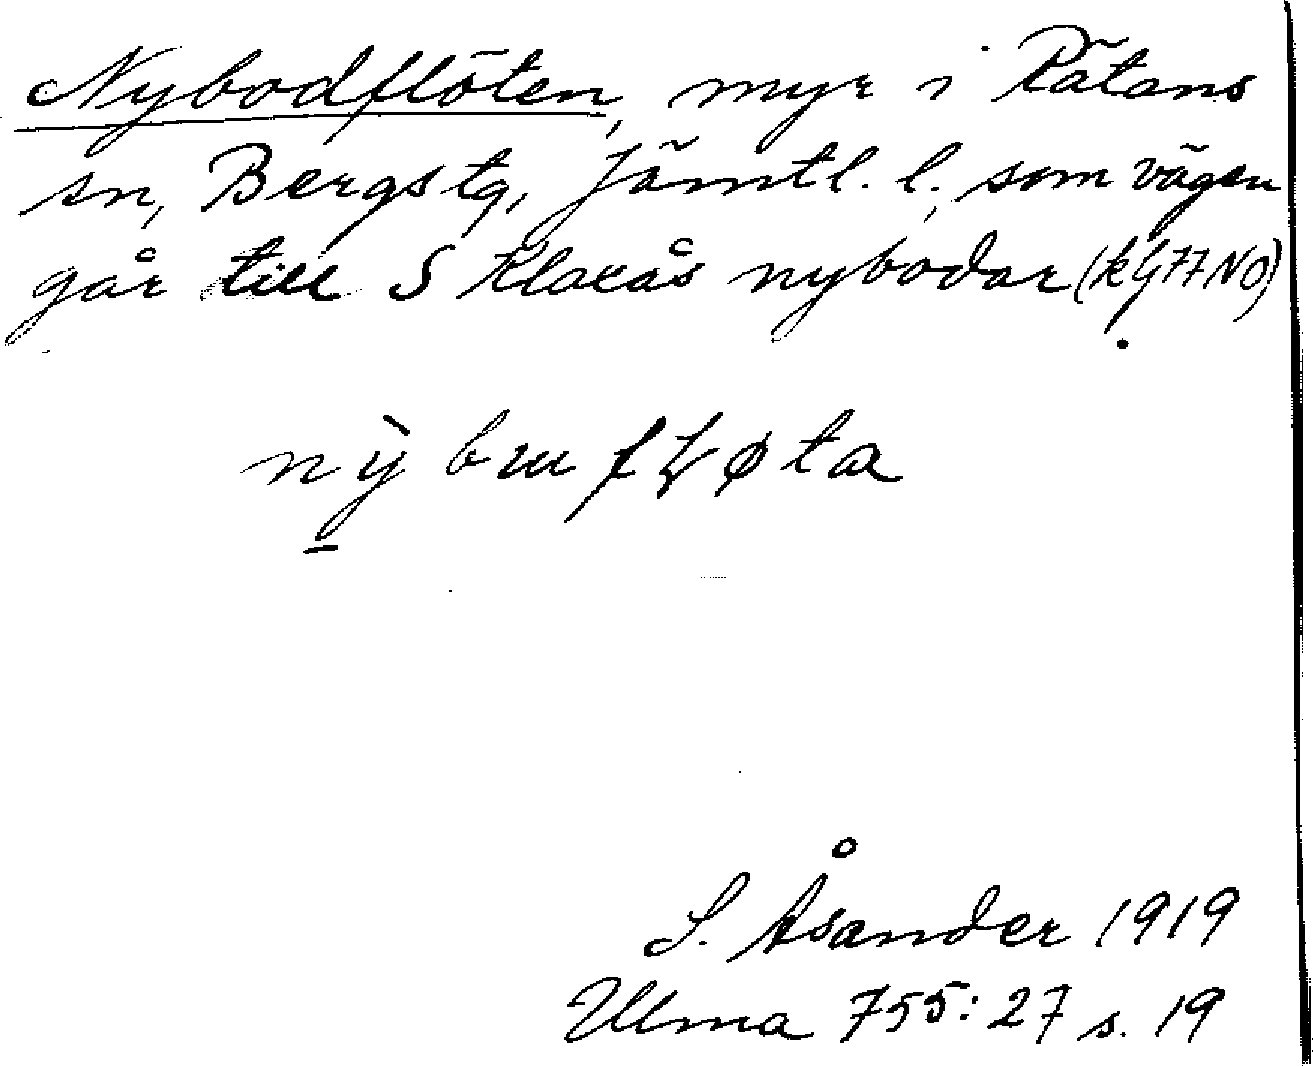 Nybodflöten, myr i Rätans
sn, Bergs tg, Jämtl. l., som vägen
går till S Klaxås nybodar (kG 77 NO)
L. Åsander 1919
Ulma 755:27 s. 19